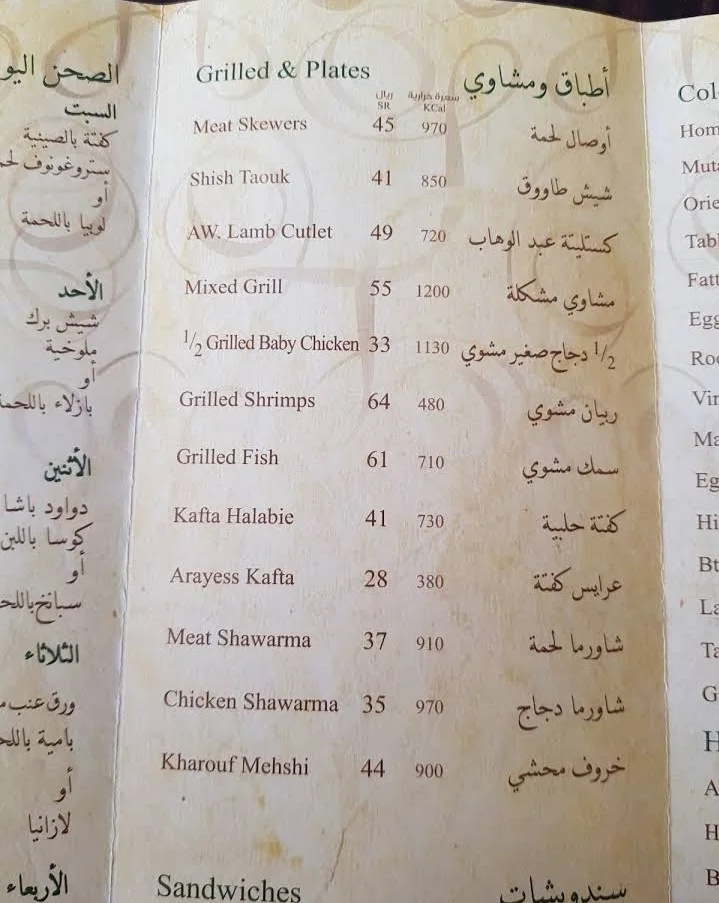 الصحن اليو
السبت
كفتة بالصينية
ستروغونوف لحم
أو
لوبيا باللحمة
الأحد
شيش برك
ملوخية
أو
بازلاء باللحمة
الأثنين
دواود باشا
كوسا باللبن
أو
سبانخ باللح
الثلاثاء
ورق عنب
بامية باللح
أو
لازانيا
الأربعاء
Grilled & Plates أطباق ومشاوي
ريال سعرة حرارية
SR KCal
Meat Skewers 45 970 أوصال لحمة
Shish Taouk 41 850 شيش طاووق
AW. Lamb Cutlet 49 720 كستليتة عبد الوهاب
Mixed Grill 55 1200 مشاوي مشكلة
1/2 Grilled Baby Chicken 33 1130 1/2 دجاج صغير مشوي
Grilled Shrimps 64 480 ربيان مشوي
Grilled Fish 61 710 سمك مشوي
Kafta Halabie 41 730 كفتة حلبية
Arayess Kafta 28 380 عرايس كفتة
Meat Shawarma 37 910 شاورما لحمة
Chicken Shawarma 35 970 شاورما دجاج
Kharouf Mehshi 44 900 خروف محشي
Sandwiches سندويشات
Col
Hom
Muta
Orie
Tabl
Fatt
Egg
Roc
Vin
Ma
Eg
Hi
Bt
La
Ta
G
H
A
H
B